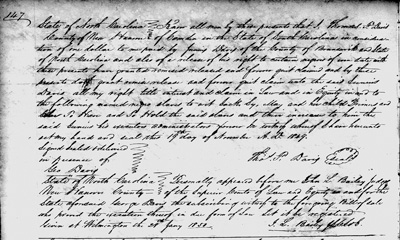 147
State of North Carolina Know all men by these presents that I Thomas P. Davis
County of New Hanover of Camden in the State of South Carolina in consideration
of one dollar to me paid by James Davis of the County of Brunswick and State
of North Carolina and also of a release of his right to certain negroes of even date with
these presents have granted remised released and forever quit claimed and by these
presents do grant remise release and forever quit claim unto the said James
Davis all my right title interest and claim in Law and in Equity in and to
the following named negro slaves to wit
To Have and To Hold the said slaves and their increase to him the
said James his executors administrators forever In witness whereof I have hereunto
set my hand and seal this 19th day of November A.D. 1849.
Signed sealed & delivered
in presence of Tho. P. Davis (Seal)
Geo Davis
State of North Carolina Personally appeared before me John L. Bailey Judge
New Hanover County of the Superior Courts of Law and Equity in and for the
State aforesaid George Davis the subscribing witness to the foregoing Bill of Sale
who proved the execution thereof in due form of Law Let it be registered
Given at Wilmington the 29th Jany 1850.
J. L. Bailey